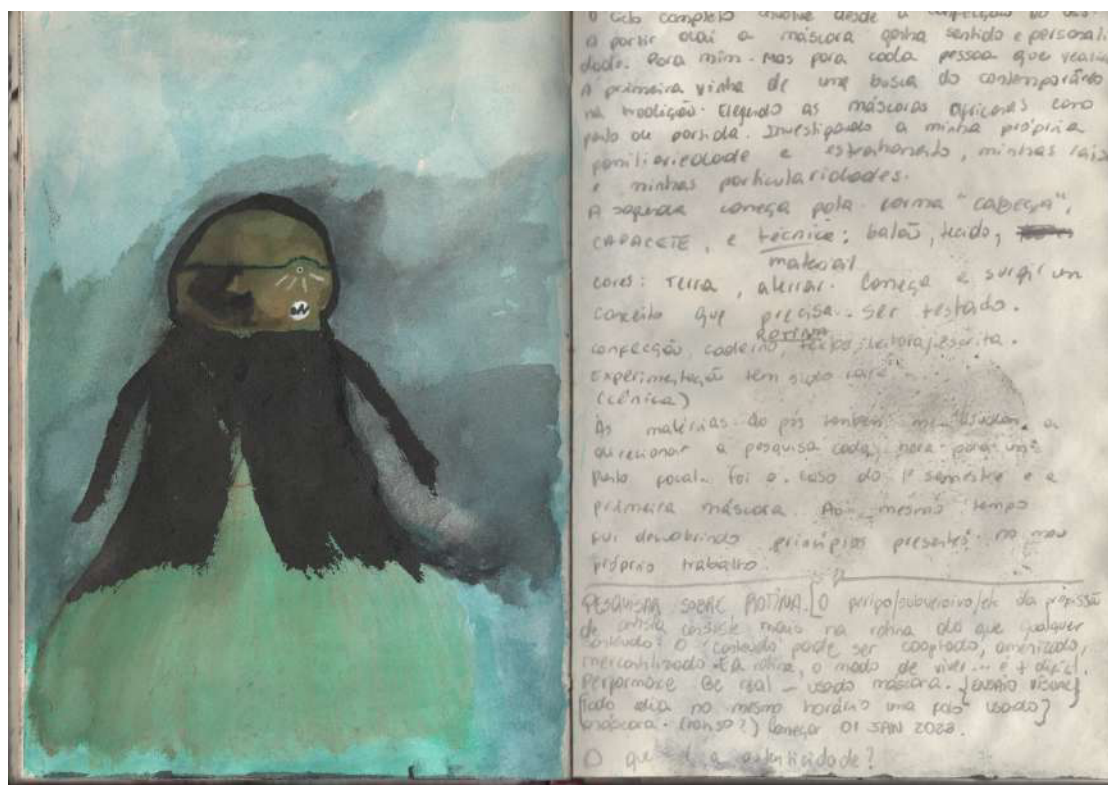 O ciclo completo envolve desde a confecção do
A partir daí a máscara ganha sentido e personali
dade. Para mim. Mas para cada pessoa que
A primeira vinha de uma busca do contemporâneo
na tradição. Elegendo as máscaras africanas como
ponto de partida. Investigando a minha própria
familiariedade e estranhamento, minhas raízes
e minhas particularidades.
A segunda começa pela forma "CABEÇA",
CAPACETE, e técnica: balão, tecido,
material
cores: TERRA, aterrar. Começa a surgir um
conceito que precisa ser testado.
Rotina
confecção, caderno, textos, leitura, escrita.
Experimentação tem sido
(cênica)
As matérias do pós também me ajudam a
direcionar a pesquisa cada hora para um
ponto focal. foi o caso do 1º semestre e a
primeira máscara. Ao mesmo tempo
fui descobrindo princípios presentes no meu
próprio trabalho.
PESQUISAR SOBRE ROTINA. O perigo/subversivo/etc da profissão
de artista consiste mais na rotina do que qualquer
conteúdo. O conteúdo pode ser cooptado, amenizado,
mercantilizado. A rotina, o modo de viver... é + difícil.
Performance Be real - usado máscara. {ENSAIO VISUAL}
Todo dia no mesmo horário uma foto usado
máscara. (ranso?) Começar 01 JAN 2023.
O que é a autenticidade?